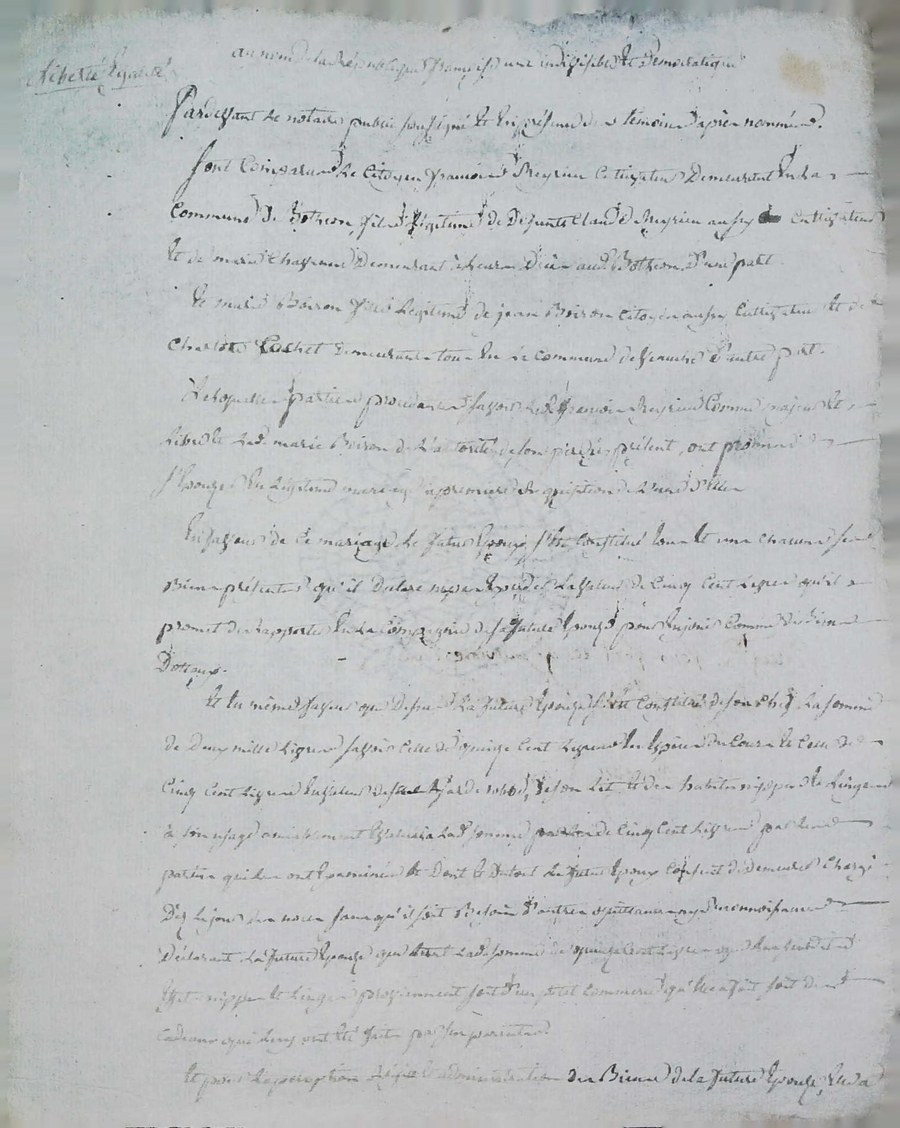 Liberté Egalité
au nom de la République françoise une indivisible et Democratique
Pardevant Le notaire public soussigné et En présence des témoins d'après nommés.
sont Comparus Le Citoyen françois Meyrieu Cultivateur Demeurant En La
Commune de Bothéon, fils Légitime de Défunt Claude Meyrieu aussy Cultivateur
et de marie Demeurant aud. Bothéon d'une part.
Et marie Boiron fille Légitime de jean Boiron Citoyen aussy Cultivateur et de
Charlotte Demeurant tous En La commune de d'autre part.
Lesquelles parties procédantes sçavoir Led. françois Meyrieu Comme majeur et
Libre et Lad. marie Boiron de L'autorité de son père présent, ont promis
s'Epouzer En Légitime mariage à première Requisition de L'une d'Elles
En faveur de Ce mariage Le futur Epoux s'est Constitué tous et uns chacuns ses
Biens présents qu'il Déclare La valeur de Cinq Cent Livres qu'il
promet de rapporter En La Compagnie de sa future Epouze pour Comme de Biens
Dotaux.
Et En même faveur que Dessus La future Epouze s'est Constitué de son Chef La somme
de Deux mille Livres sçavoir Celle de quinze Cent Livres En Espèces du Cours et Celle de
Cinq Cent Livres En valeur de son garderobe, de son Lit, et des habits nippes et Linges
à son usage amiablement Evalués à Lad. somme de Cinq Cent Livres par Les
parties qui Les ont Examinés et Dont et Du tout Le futur Epoux Consent de demeurer Chargé
Dez Le jour des noces sans qu'il soit Besoin d'autres quittances ny reconnoissances
Déclarant La future Epouze que Lad. somme de quinze cent Livres
Effets nippes et Linges proviennent soit d'un petit Commerce qu'Elle a fait soit des
Cadeaux qui Luy ont été faits par ses parents
Et pour La perception Régie et administration des Biens de la future Epouze, Elle a